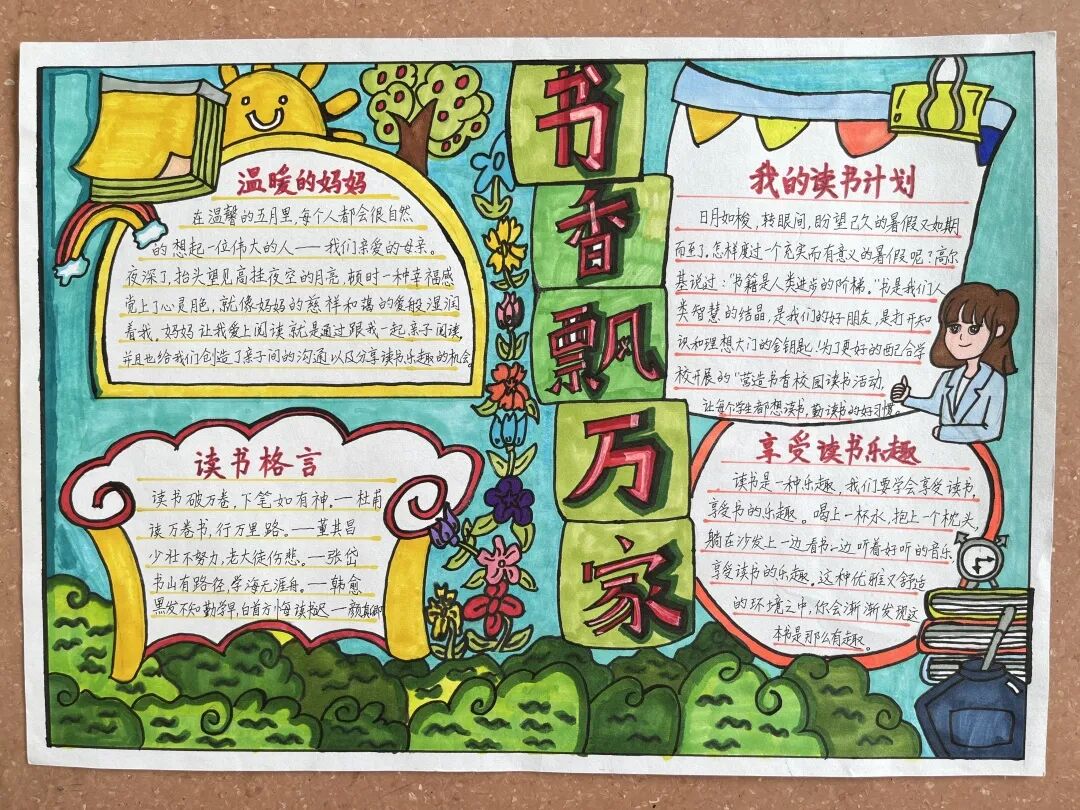 书香飘万家
温暖的妈妈
在温馨的五月里,每个人都会很自然
的想起一位伟大的人——我们亲爱的母亲。
夜深了,抬头望见高挂夜空的月亮,顿时一种幸福感
觉上了心灵月色,就像妈妈的慈祥和蔼的爱般湿润
着我。妈妈让我爱上阅读就是通过跟我一起亲子阅读,
并且也给我们创造了亲子间的沟通以及分享读书乐趣的机会。
读书格言
读书破万卷,下笔如有神。——杜甫
读万卷书,行万里路。——董其昌
少壮不努力,老大徒伤悲。——张岱
书山有路径,学海无涯舟。——韩愈
黑发不知勤学早,白首方悔读书迟——颜真卿
我的读书计划
日月如梭,转眼间,盼望已久的暑假又如期
而至了。怎样度过一个充实而有意义的暑假呢?高尔
基说过:"书籍是人类进步的阶梯。"书是我们人
类智慧的结晶,是我们的好朋友,是打开知
识和理想大门的金钥匙!为了更好的配合学
校开展的"营造书香校园读书活动,
让每个学生都想读书,勤读书的好习惯。
享受读书乐趣
读书是一种乐趣,我们要学会享受读书,
享受书的乐趣。喝上一杯水,抱上一个枕头,
躺在沙发上一边看书一边听着好听的音乐,
享受读书的乐趣。这种优雅又舒适
的环境之中,你会渐渐发现这
本书是那么有趣。